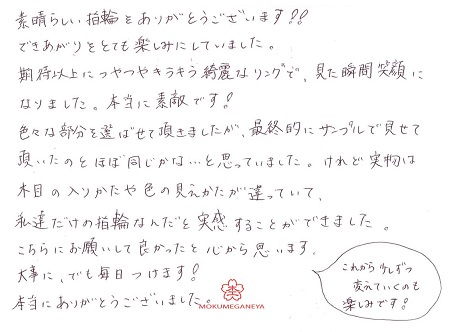 素晴らしい指輪をありがとうございます!!
できあがりをとても楽しみにしていました。
期待以上につやつやキラキラ綺麗なリングで、見た瞬間笑顔に
なりました。本当に素敵です!
色々な部分を選ばせて頂きましたが、最終的にサンプルで見せて
頂いたのとほぼ同じかな…と思っていました。けれど実物は
木目の入りかたや色の見えかたが違っていて、
私達だけの指輪なんだと実感することができました。
こちらにお願いして良かったと心から思います。
大事に、でも毎日つけます!
本当にありがとうございました。
MOKUMEGANEYA
これから少しずつ
変えていくのも
楽しみです!